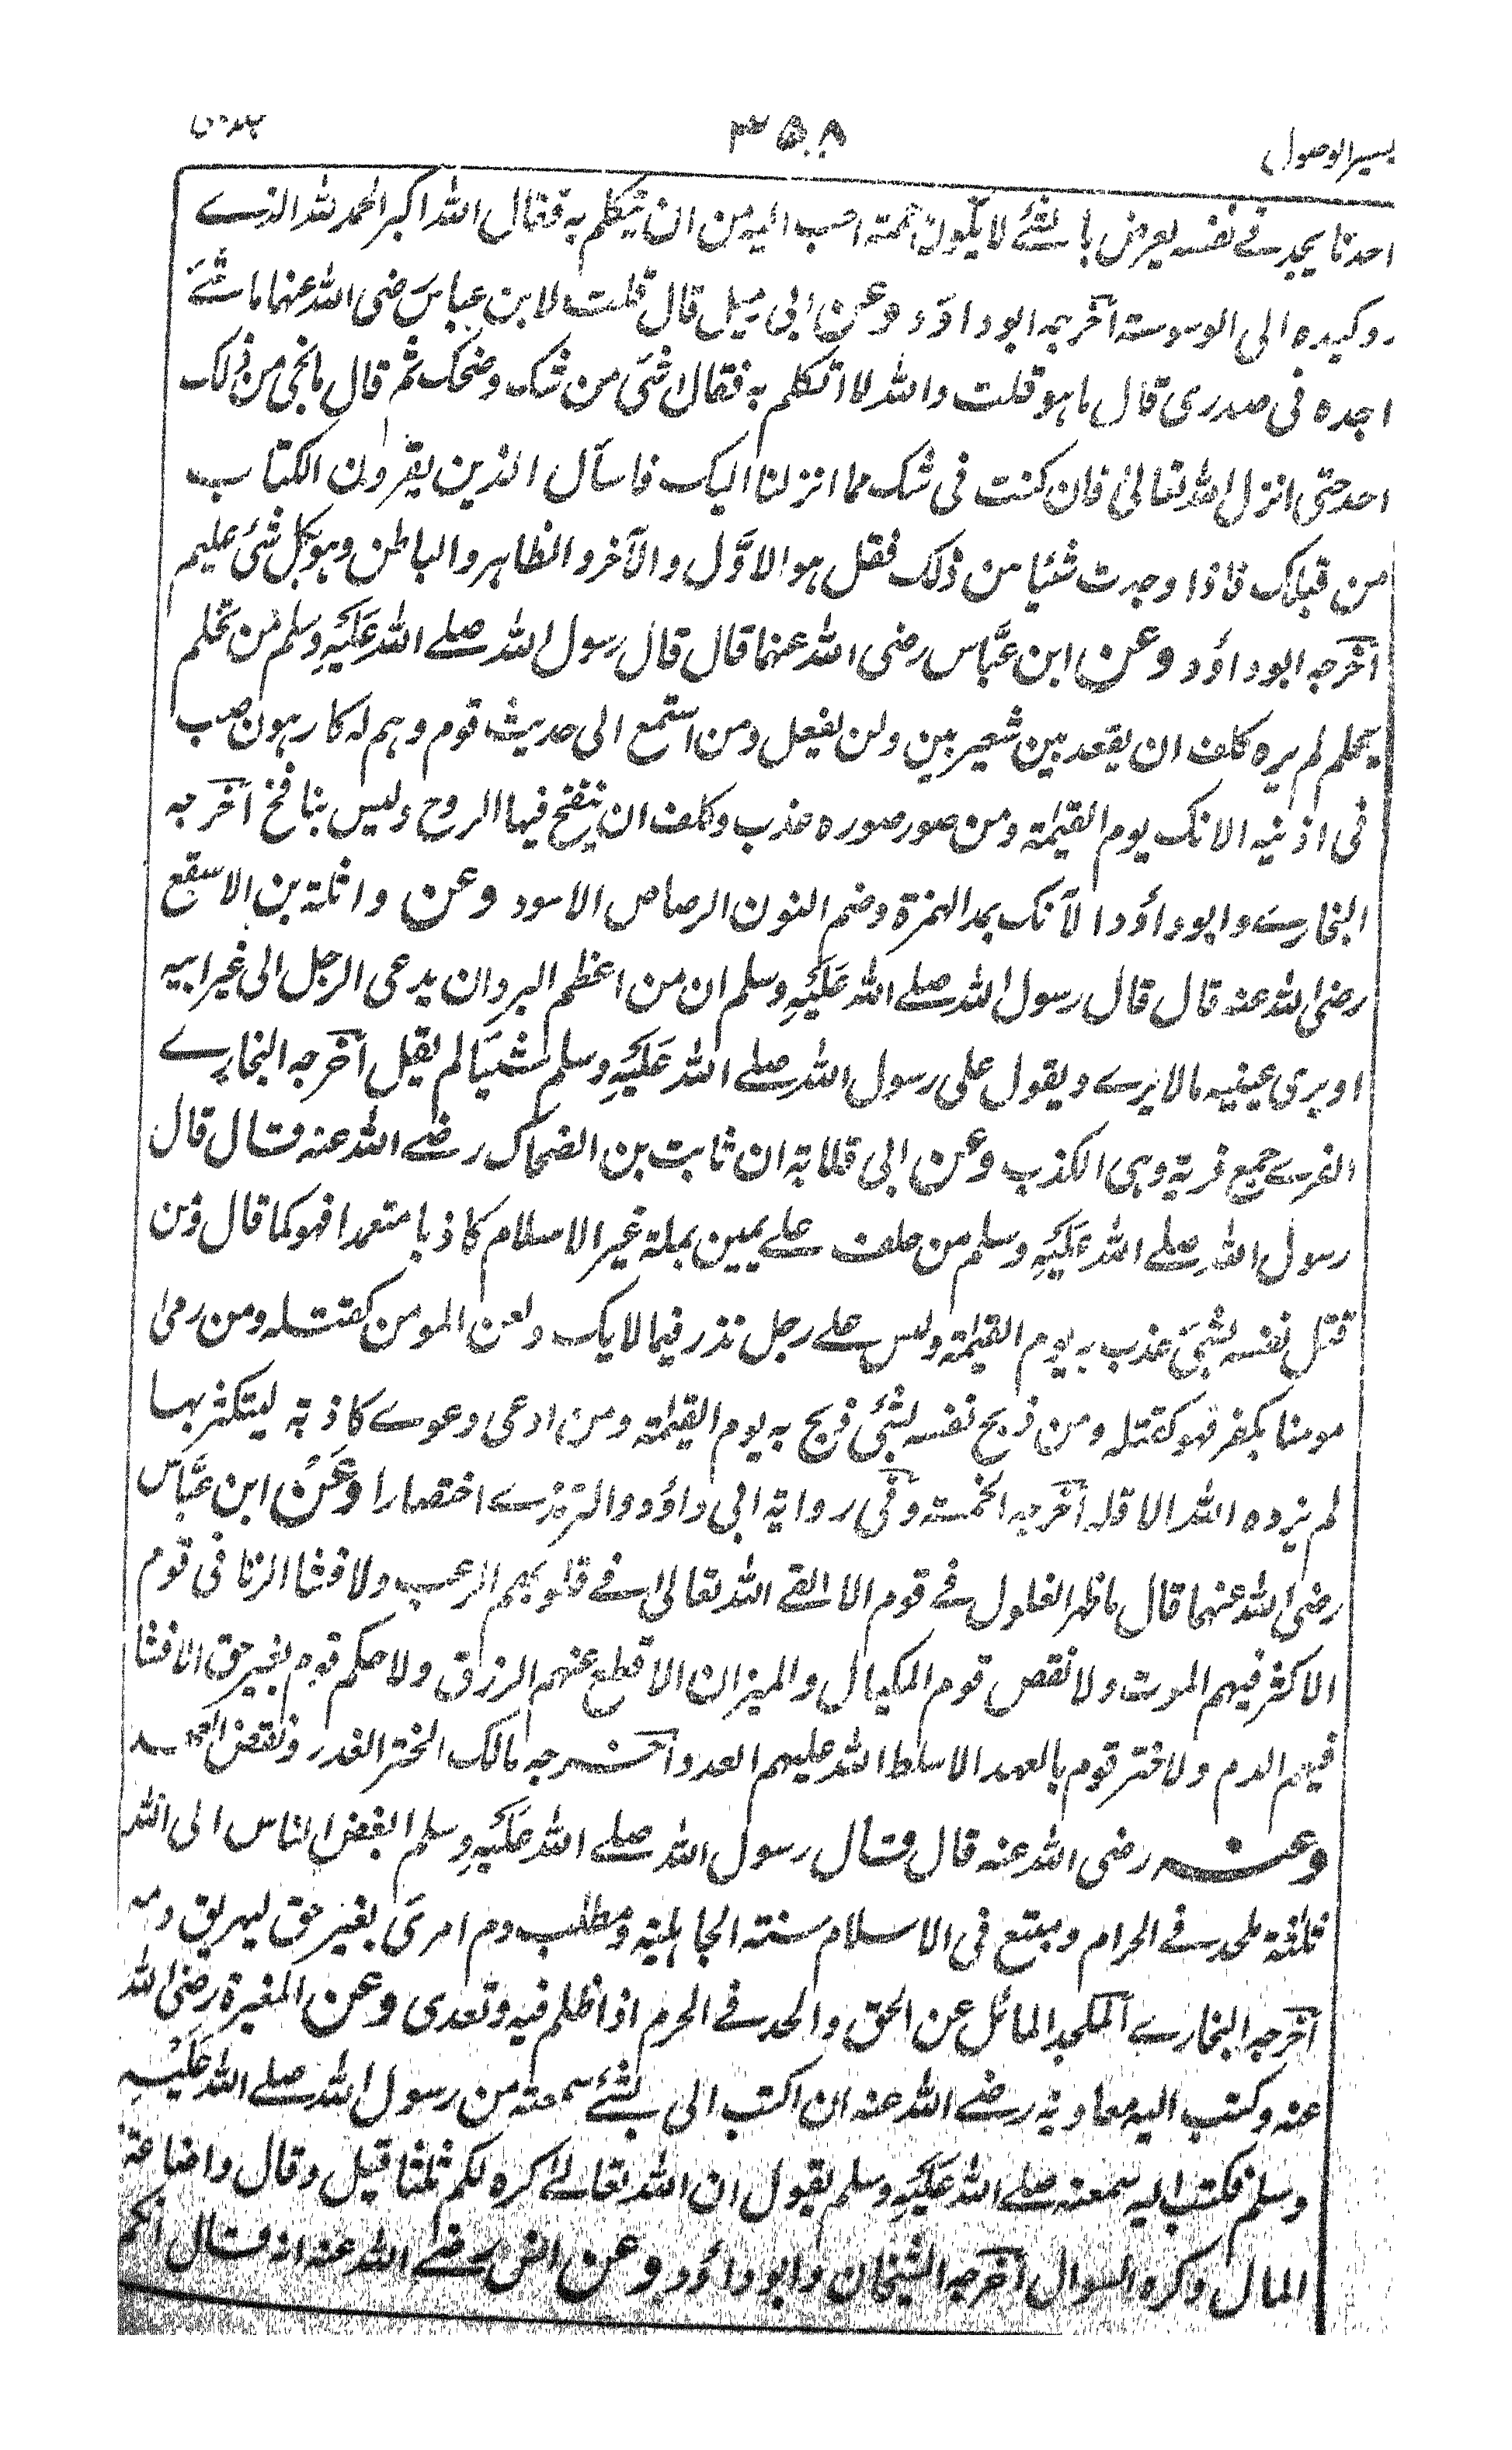 تيسير الوصول ٣٥٨
احدنا يجد في نفسه يعرض بالشئ لا يكون حممة احب اليه من ان يتكلم به فقال الله اكبر الحمد لله الذے
رد كيده الى الوسوسة اخرجه ابو داؤد وعن ابى زميل قال قلت لابن عباس رضى الله عنهما ما شئ
اجده فى صدرى قال ما هو قلت والله لا اتكلم به فقال اشئ من شك وضحك ثم قال ما نجى من ذلك
احد حتى انزل الله تعالى فان كنت فى شك مما انزلنا اليك فاسأل الذين يقرون الكتاب
من قبلك فاذا وجدت شئيا من ذلك فقل هو الاوّل والآخر والظاهر والباطن وهو بكل شئ عليم
اخرجه ابو داؤد وعن ابن عبّاس رضى الله عنهما قال قال رسول الله صلے الله عَلَيْهِ وسلم من تحلم
بحلم لم يره كلف ان يقعد بين شعيرتين ولن يفعل ومن استمع الى حديث قوم وهم له كارهون صب
فى اذنيه الانك يوم القيمة ومن صور صورة عذب وكلف ان ينفخ فيها الروح وليس بنافخ اخرجه
البخارے وابو داؤد الآنك بمد الهمزة وضم النون الرصاص الاسود وعن واثلة بن الاسقع
رضى الله عنه قال قال رسول الله صلے الله عَلَيْهِ وسلم ان من اعظم ان يدعى الرجل الى غير ابيه
او يرى عينيه مالا يرے ويقول على رسول الله صلے الله عَلَيْهِ وسلم شيئا لم يقل اخرجه البخارے
الفرے جمع فرية وهى الكذب وعن ابى قلابة ان ثابت بن الضحاك رضے الله عنه قال قال
رسول الله صلے الله عَلَيْهِ وسلم من حلف علے يمين بملة غير الاسلام كاذبا متعمدا فهو كما قال ومن
قتل نفسه بشئ عذب به يوم القيمة وليس علے رجل نذر فيما لا يملك ولعن المومن كقتله ومن رمى
مومنا بكفر فهو كقتله ومن ذبح نفسه بشئ ذبح به يوم القيمة ومن ادعى دعوے كاذبة ليتكثر بها
لم يزده الله الا قلة اخرجه الخمسة وفى رواية ابى داؤد والترمذے اختصارا وعَنْ ابن عبّاس
رضى الله عنهما قال ما ظهر الغلول فے قوم الا القے الله تعالى فے قلوبهم الرعب ولا فشا الزنا فى قوم
الا كثر فيهم الموت ولا نقص قوم المكيال والميزان الا قطع عنهم الرزق ولا حكم قوم بغير حق الا فشا
فيهم الدم ولا ختر قوم بالعهد الا سلط الله عليهم العدو اخرجه مالك الختر الغدر ونقض العهد
وعنه رضى الله عنه قال قال رسول الله صلے الله عَلَيْهِ وسلم ابغض الناس الى الله
ثلثة ملحد فے الحرام ومبتغ فى الاسلام سنة الجاهلية ومطلب دم امرئ بغير حق ليهريق دمه
اخرجه البخارے الملحد المائل عن الحق والحد فے الحرم اذا ظلم فيه وتعدى وعن المغيرة رضى الله
عنه وكتب اليه معاوية رضے الله عنه ان اكتب الى بشئ سمعته من رسول الله صلے الله عَلَيْهِ
وسلم فكتب اليه سمعته صلے الله عَلَيْهِ وسلم يقول ان الله تعالے كره لكم ثلثا قيل وقال واضاعة
المال وكره السوال اخرجه الشيخان وابو داؤد وعن انس رضے الله عنه اذ قال انكم